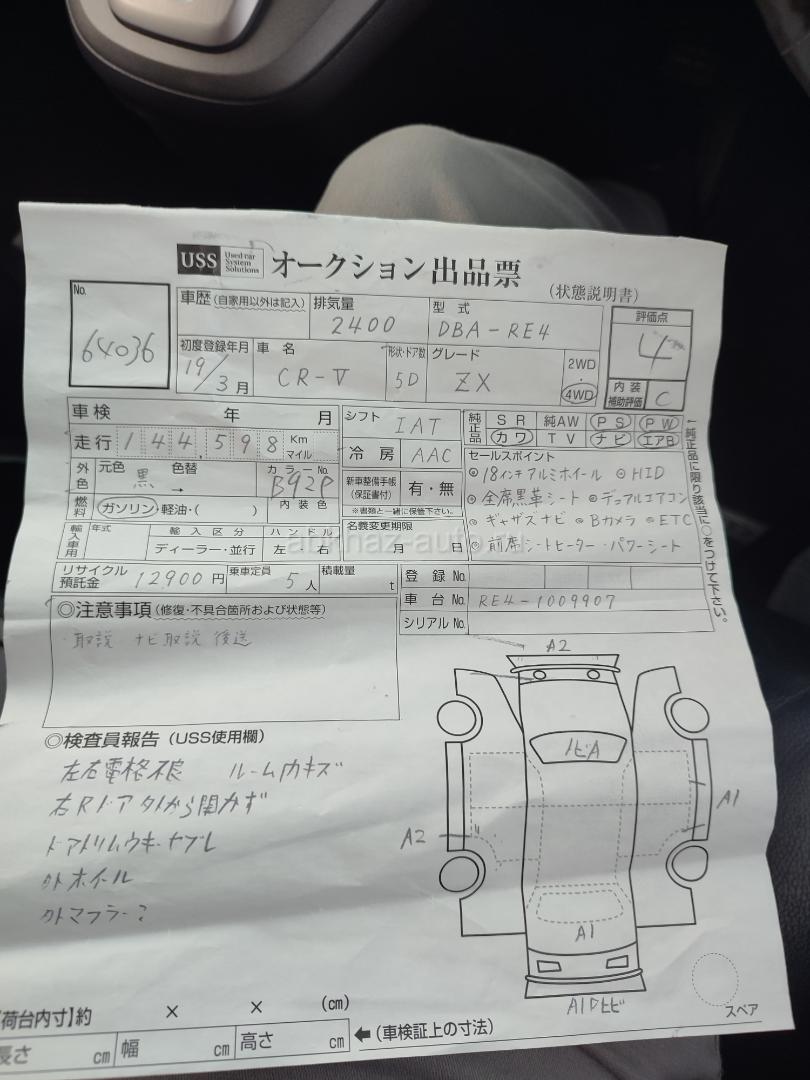 USS Used car System Solutions オークション出品票 (状態説明書)
No. 64036
車歴(自家用以外は記入) 排気量 2400 型式 DBA-RE4 評価点 4
初度登録年月 19/3月 車名 CR-V 形状・ドア数 5D グレード ZX 2WD 4WD 内装補助評価 C
車検 年 月 シフト IAT 純正品 SR 純AW PS PW
走行 144,598 Km マイル 冷房 AAC カワ TV ナビ エアB
外色 元色 黒 色替 → カラーNo. B92P 新車整備手帳(保証書付) 有・無 セールスポイント
燃料 ガソリン・軽油・( ) 内装色 ※書類と一緒に保管下さい。
◎18インチアルミホイール ◎HID
◎全席黒革シート ◎デュアルエアコン
◎ギャザズナビ ◎Bカメラ ◎ETC
◎前席シートヒーター・パワーシート
←純正品に限り該当に○をつけて下さい。
輸入車用 年式 輸入区分 ハンドル 名義変更期限
ディーラー・並行 左・右 月 日
abkhaz-auto
リサイクル預託金 12900円 乗車定員 5人 積載量 t 登録No.
車台No. RE4-1009907
シリアルNo.
◎注意事項(修復・不具合箇所および状態等)
・取説 ナビ取説 後送
◎検査員報告(USS使用欄)
左右電格不良 ルーム内キズ
右Rドア外から開かず
ドアトリムウキ・ヤブレ
外ホイール
外マフラー?
A2
トビA
A1
A2
A1
A1ワヒビ
スペア
【荷台内寸】約 × × (cm)
長さ cm 幅 cm 高さ cm ←(車検証上の寸法)